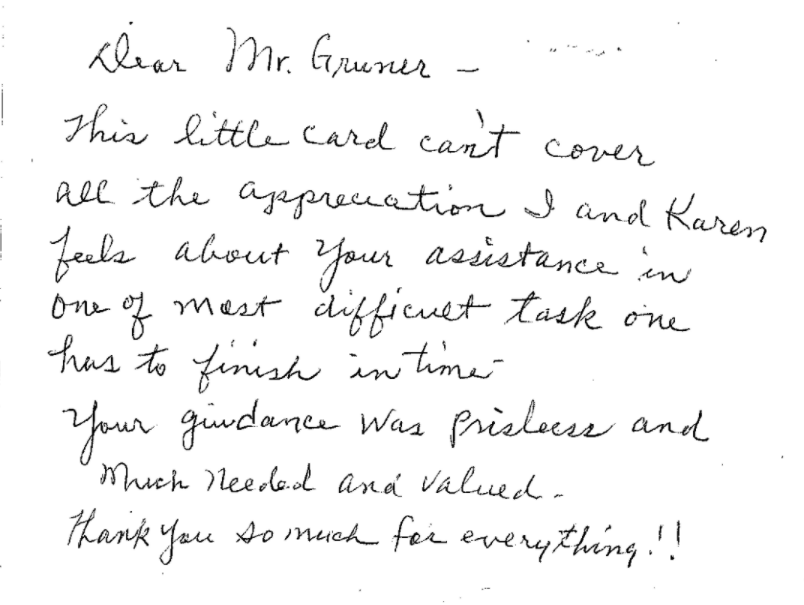 Dear Mr. Gruner -
This little card can't cover
all the appreciation I and Karen
feels about your assistance in
one of most difficult task one
has to finish in time -
Your guidance was prisless and
Much needed and valued -
Thank you so much for everything!!